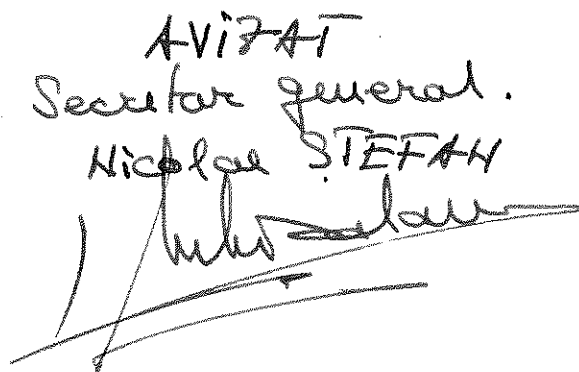 AVIZAT
Secretar general.
Nicolae ŞTEFAN